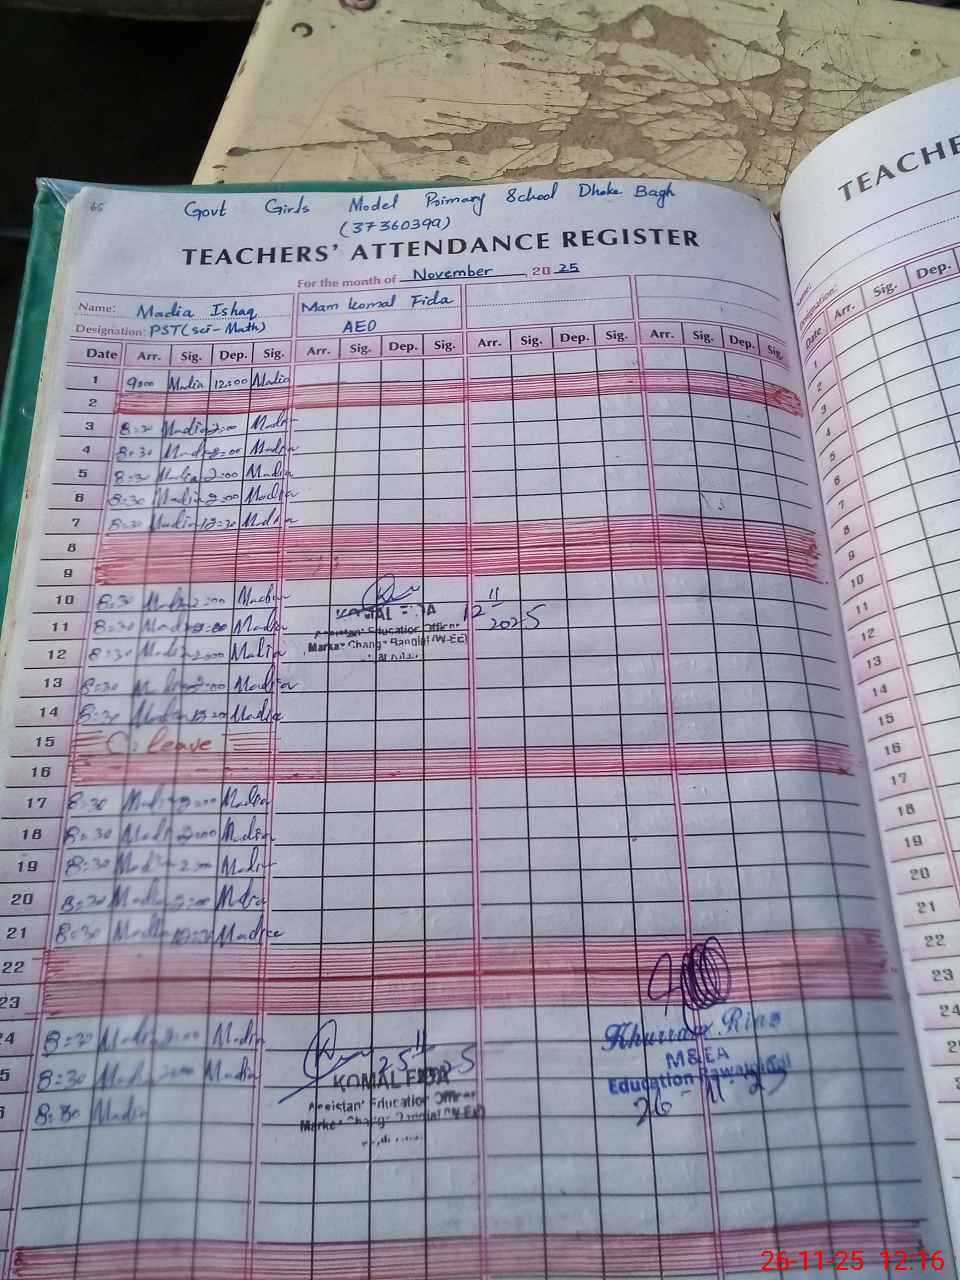 66
Govt Girls Model Primary School Dhoke Bagh
(37360399)
TEACHERS' ATTENDANCE REGISTER
For the month of November, 20 25
Name: Madia Ishaq Mam Komal Fida
Designation: PST(sci-Math) AEO
Date Arr. Sig. Dep. Sig. Arr. Sig. Dep. Sig. Arr. Sig. Dep. Sig. Arr. Sig. Dep. Sig.
1 9:00 Madia 12:00 Madia
2
3 8:30 Madia 2:00 Madia
4 8:30 Madia 2:00 Madia
5 8:30 Madia 2:00 Madia
6 8:30 Madia 2:00 Madia
7 8:30 Madia 12:30 Madia
8
9
10 8:30 Madia 2:00 Madia
11 8:30 Madia 2:00 Madia
12 8:30 Madia 2:00 Madia
13 8:30 Madia 2:00 Madia
14 8:30 Madia Madia
15 C. leave
16
17 8:30 Madia 2:00 Madia
18 8:30 Madia 2:00 Madia
19 8:30 Madia 2:00 Madia
20 8:30 Madia 2:00 Madia
21 8:30 Madia Madia
22
23
24 8:30 Madia 2:00 Madia
5 8:30 Madia 2:00 Madia
6 8:30 Madia
KOMAL FIDA
Assistant Education Officer
12 11 2025
25 11 2025
KOMAL FIDA
Assistant Education Officer
Khurram Riaz
M&EA
Education Rawalpindi
26-11-25
TEACHE
Name:
Designation:
Date Arr. Sig. Dep.
1
2
3
4
5
6
7
8
9
10
11
12
13
14
15
16
17
18
19
20
21
22
23
24
26-11-25 12:16